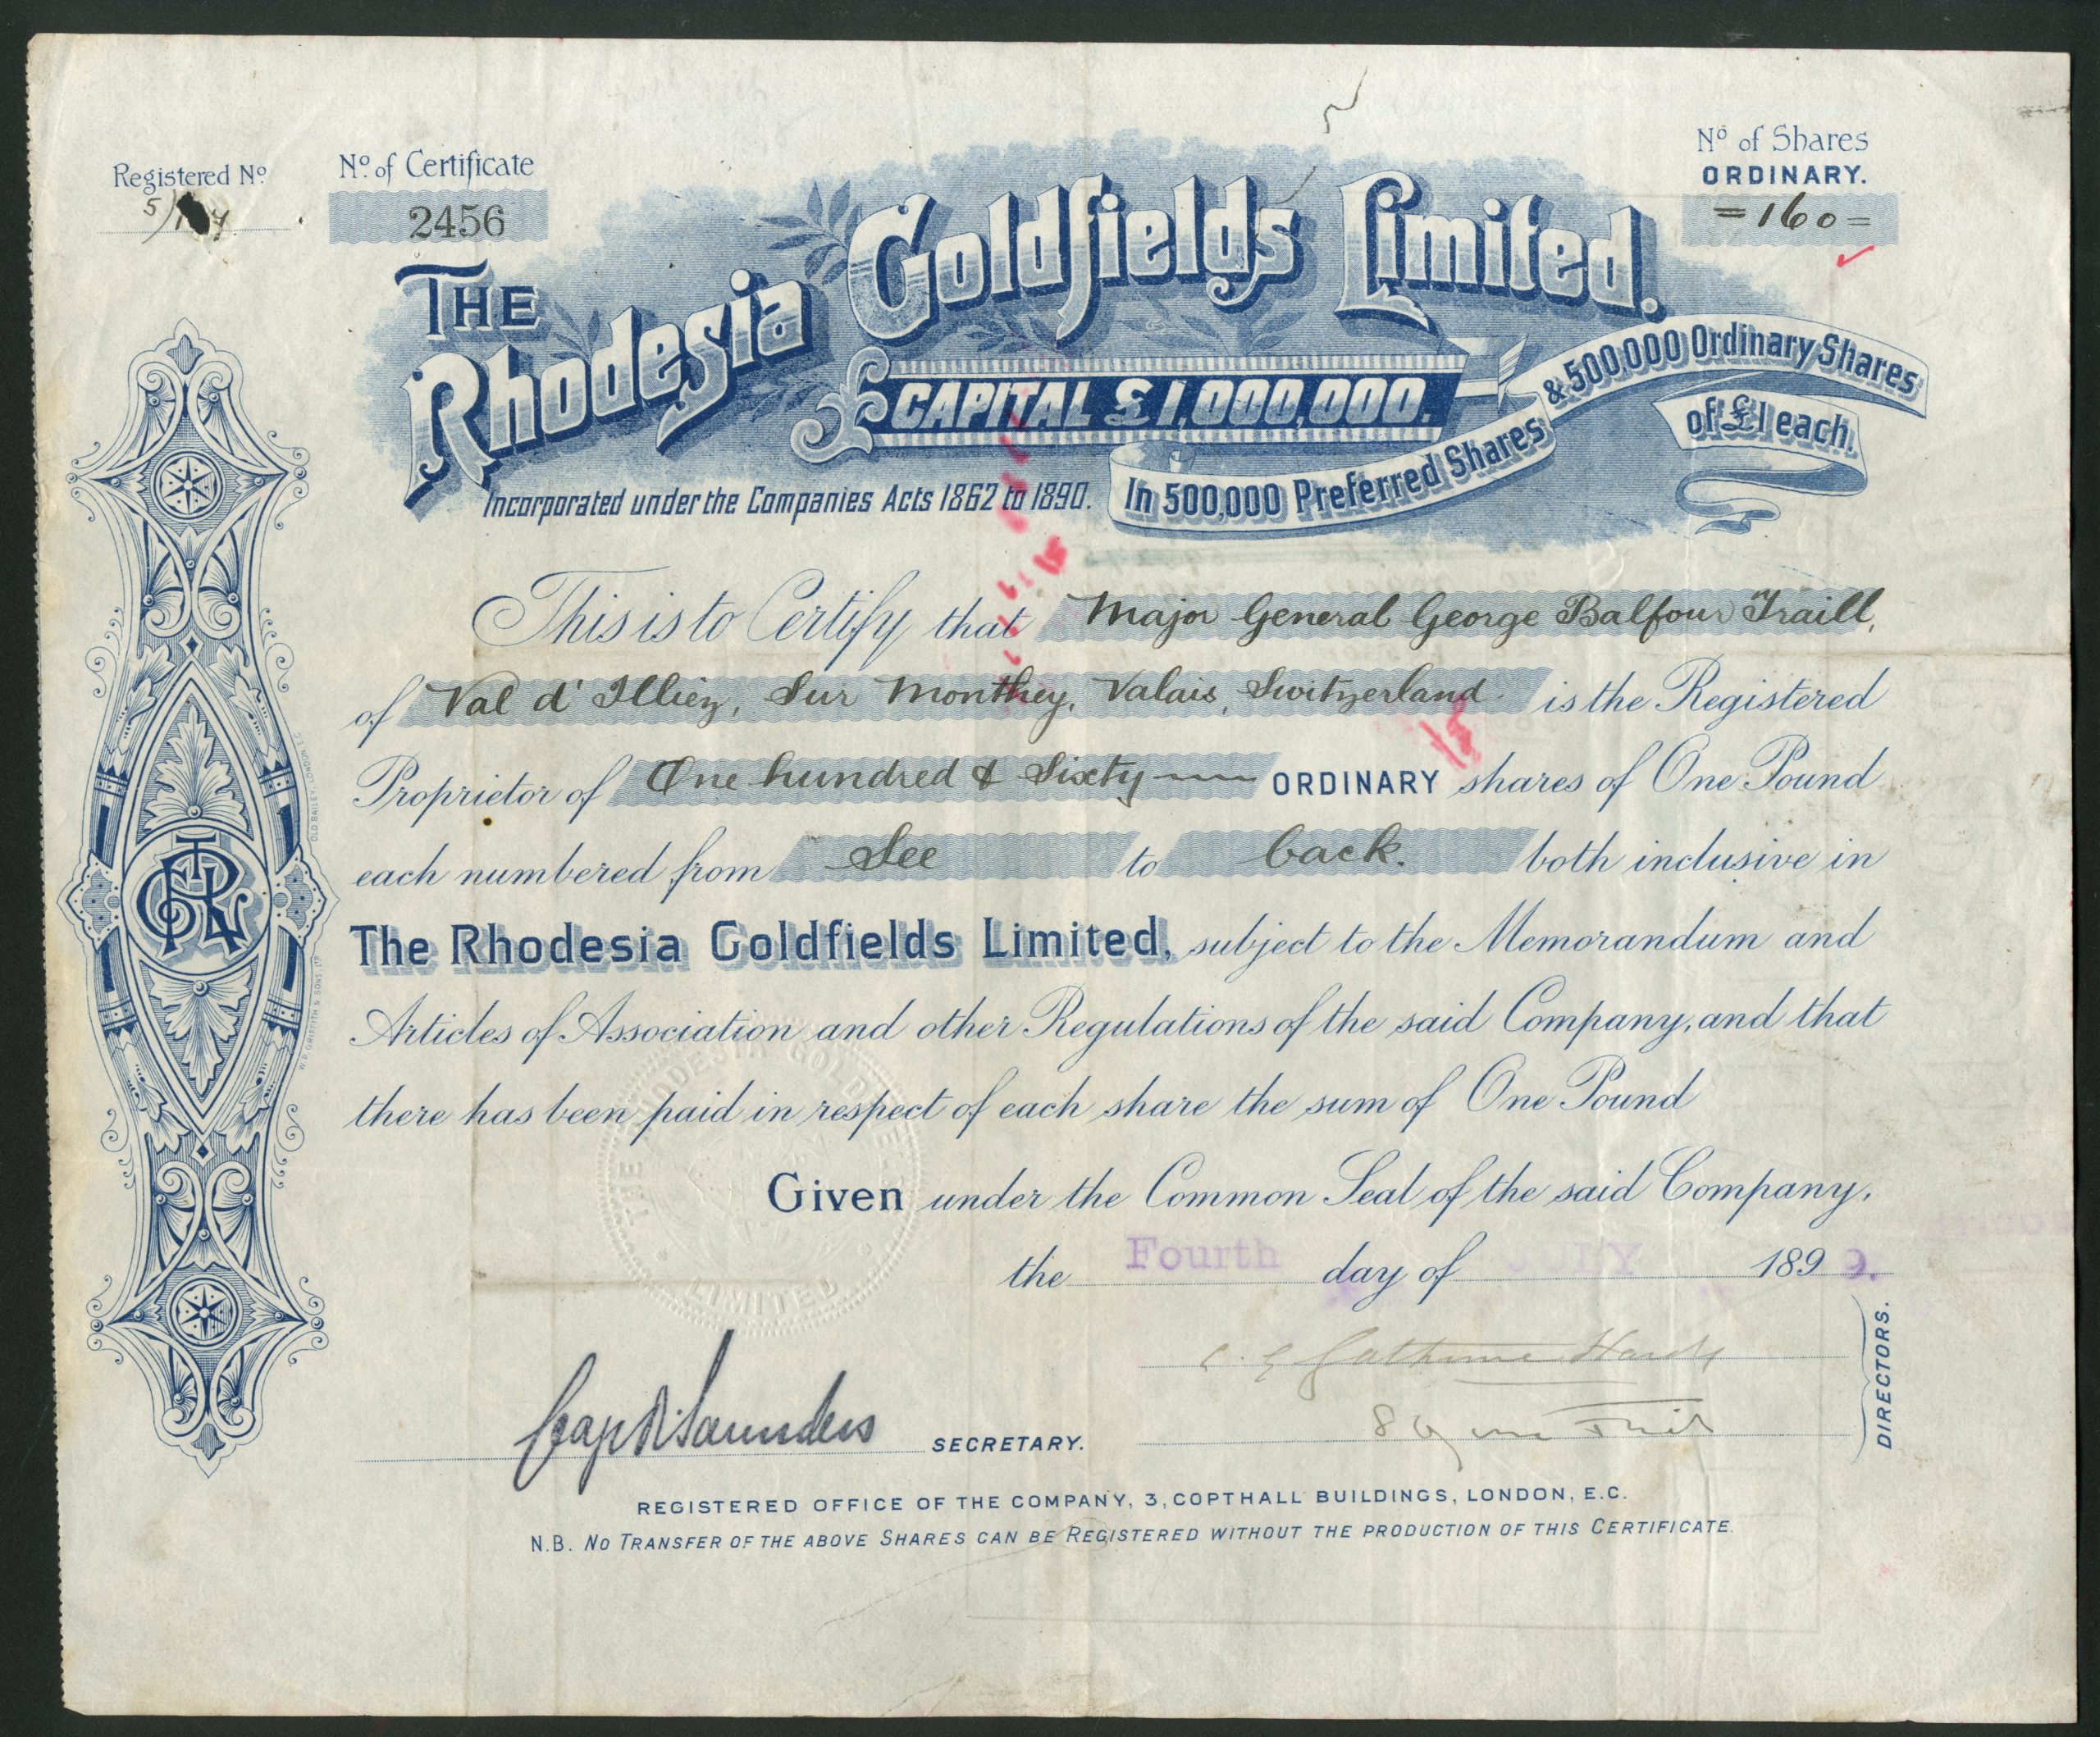 Registered No.
No. of Certificate
2456
No of Shares
ORDINARY.
=160=
THE
Rhodesia Goldfields Limited.
CAPITAL £1,000,000.
In 500,000 Preferred Shares & 500,000 Ordinary Shares
of £1 each.
Incorporated under the Companies Acts 1862 to 1890.
This is to Certify that Major General George Balfour Traill,
of Val d' Illiez, Sur Monthey, Valais, Switzerland. is the Registered
Proprietor of One hundred & Sixty ORDINARY shares of One Pound
each numbered from See to back. both inclusive in
The Rhodesia Goldfields Limited, subject to the Memorandum and
Articles of Association and other Regulations of the said Company, and that
there has been paid in respect of each share the sum of One Pound
Given under the Common Seal of the said Company,
the Fourth day of JULY 1899.
THE RHODESIA GOLDFIELDS LIMITED
DIRECTORS.
Saunders
SECRETARY.
REGISTERED OFFICE OF THE COMPANY, 3, COPTHALL BUILDINGS, LONDON, E.C.
N.B. NO TRANSFER OF THE ABOVE SHARES CAN BE REGISTERED WITHOUT THE PRODUCTION OF THIS CERTIFICATE.
W.P. GRIFFITH & SONS LD OLD BAILEY, LONDON, E.C.